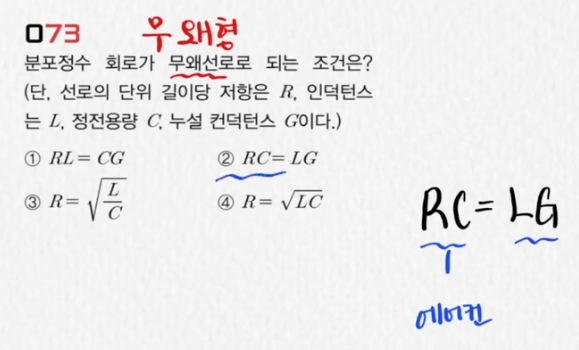 073 무왜형
분포정수 회로가 무왜선로로 되는 조건은?
(단, 선로의 단위 길이당 저항은 R, 인덕턴스
는 L, 정전용량 C, 누설 컨덕턴스 G이다.)
① RL = CG ② RC = LG
③ R = √(L/C) ④ R = √LC
RC = LG
에어컨